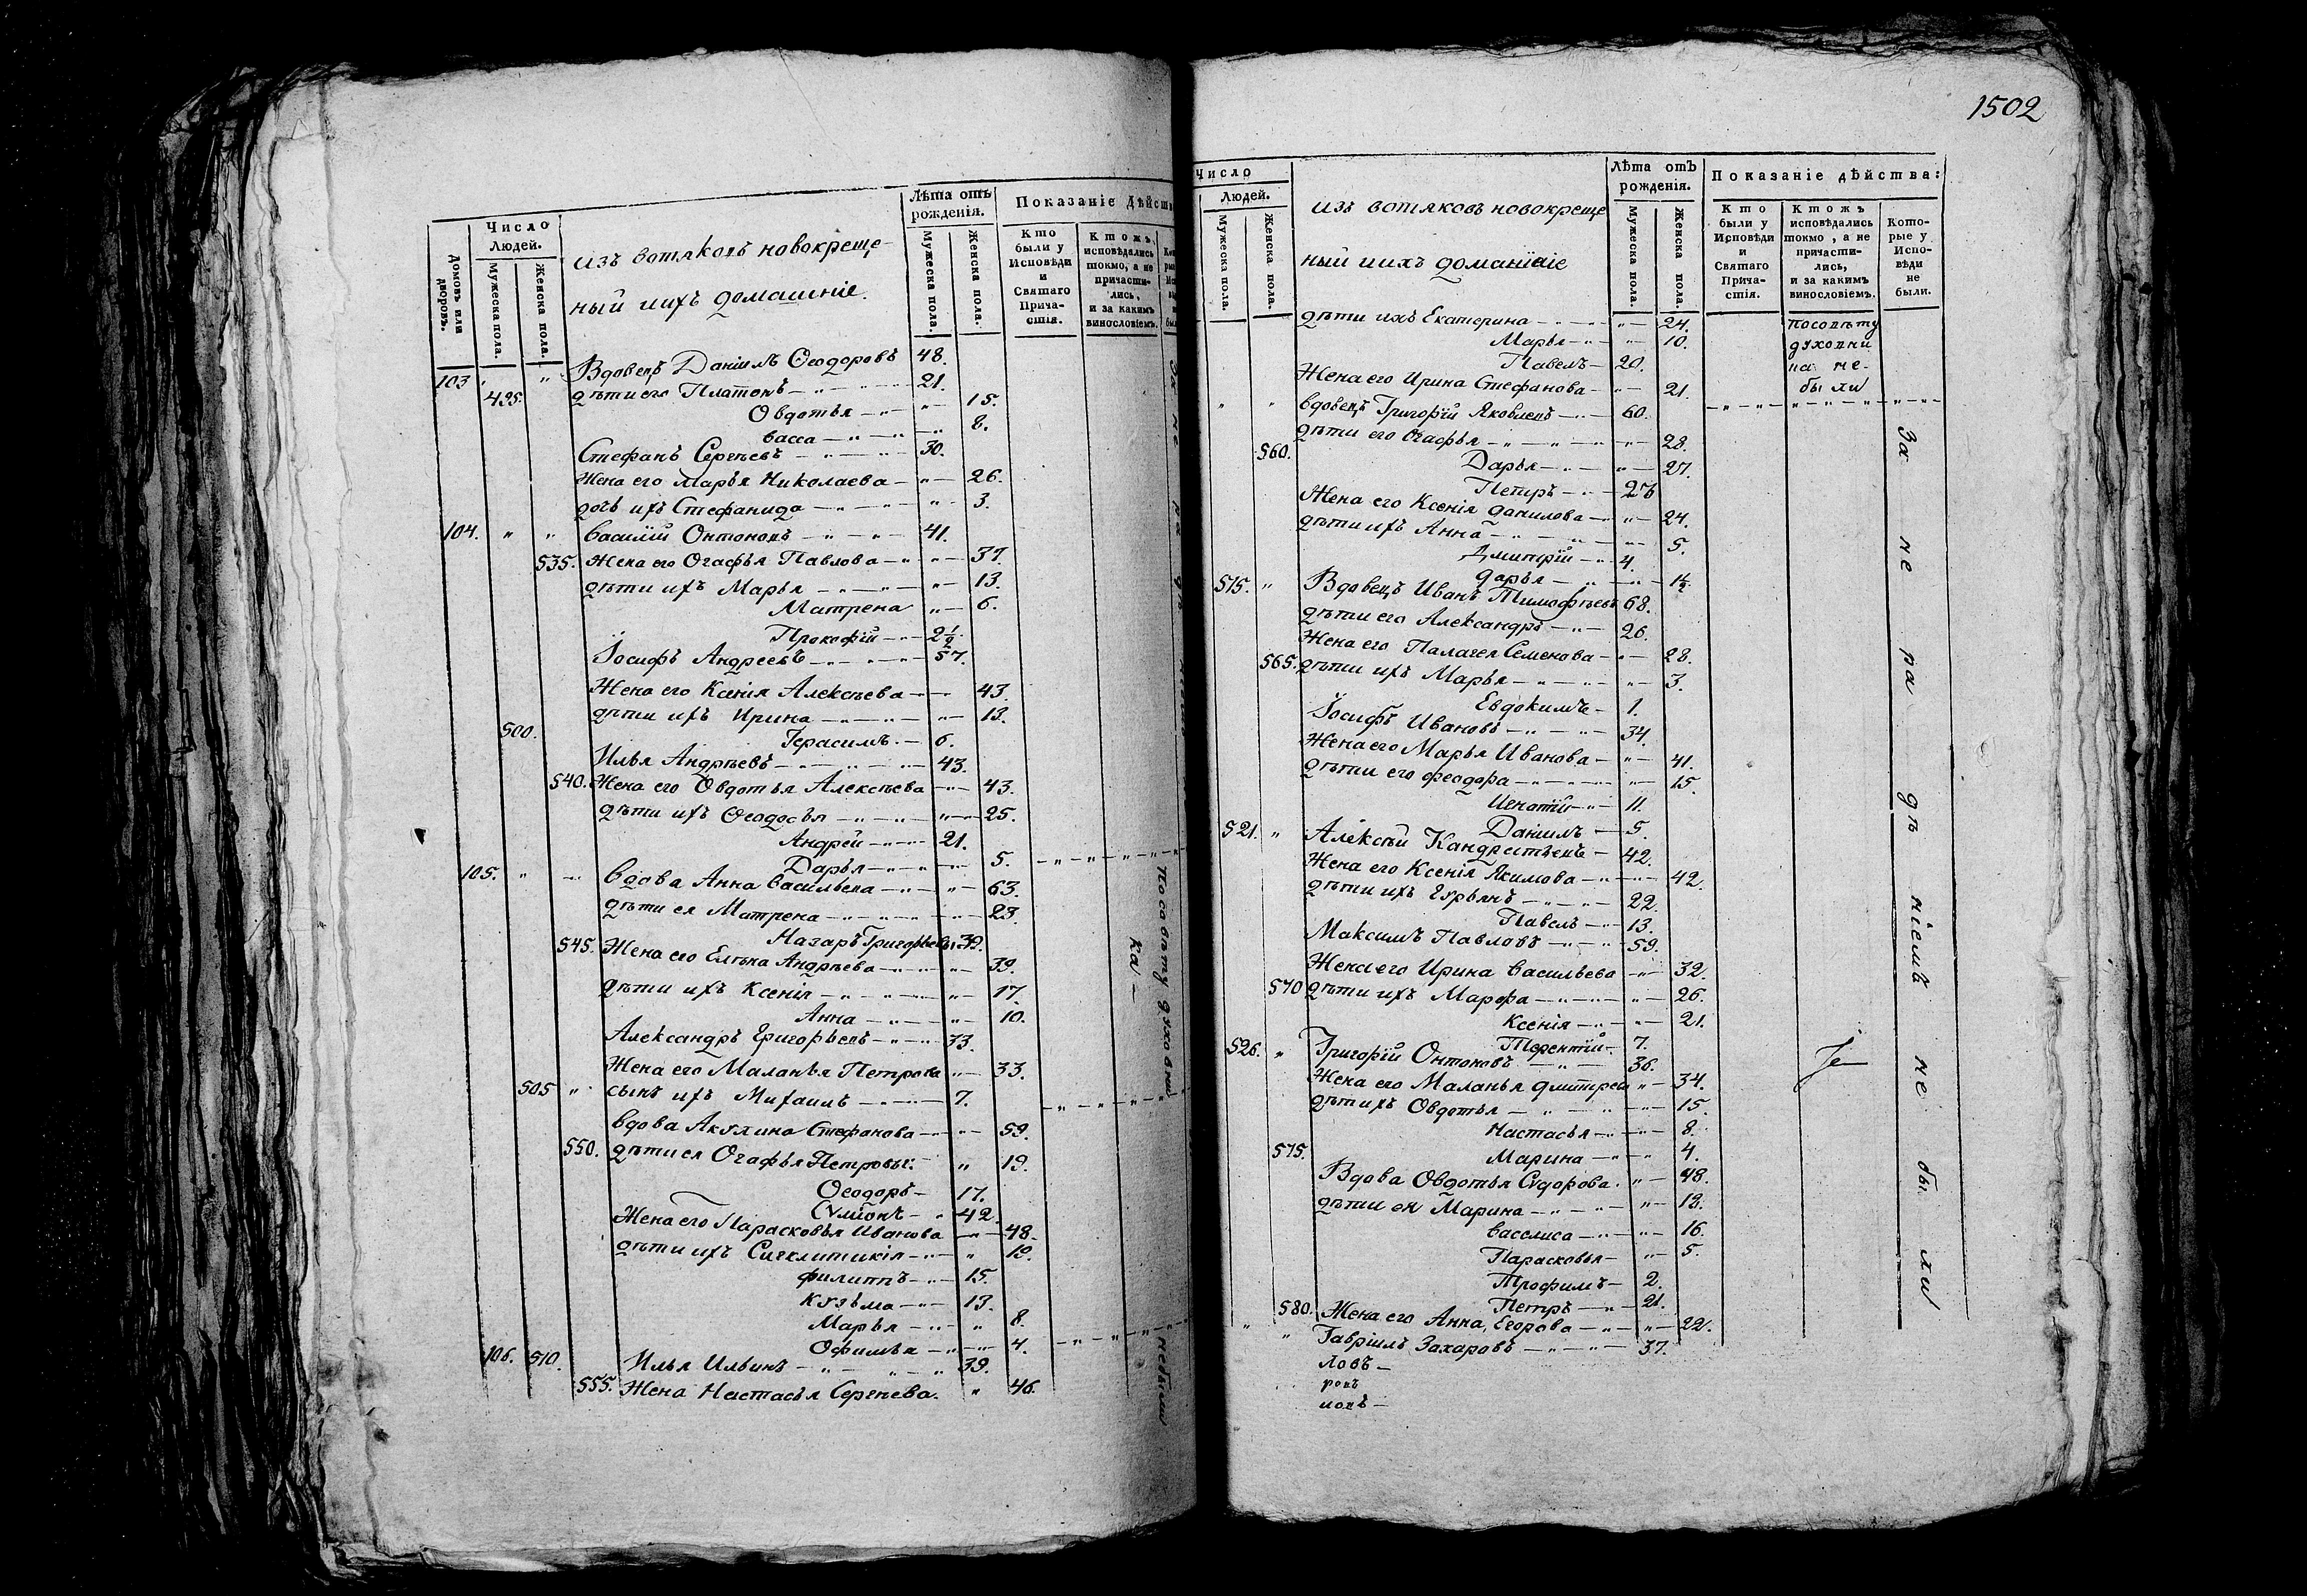 1502
Число
Людей.
Домовъ или дворовъ.
Мужеска пола.
Женска пола.
изъ вотяковъ новокреще-
ный иихъ домашніе.
Лѣта отъ
рожденія.
Мужеска пола.
Женска пола.
Показаніе Дѣйст
Кто были у Исповѣди и Святаго Прича-стія.
Ктожъ исповѣдались токмо, а не причасти-лись, и за какимъ винословіемъ.
103 " " Вдовецъ Даніилъ Ѳеодоровъ 48.
495. дѣти его Платонъ — " — 21.
Овдотья — " — 15.
васса — " — 8.
Стефанъ Сергѣевъ — " — 30.
Жена его Марья Николаева — " — 26.
дочь ихъ Стефанида — " — 3.
104. " " василій Онтоновъ — " — 41.
535. Жена его Огафья Павлова — " — 37.
дѣти ихъ Марья — " — 13.
Матрена " — 6.
Прокофій — " — 2 1/2
Іосифъ Андреевъ — " — 57.
Жена его Ксенія Алексѣева — 43.
дѣти ихъ Ирина — " — 13.
500. Герасимъ. — 6.
Илья Андрѣевъ — " — 43.
540. Жена его Овдотья Алексѣева — " — 43.
дѣти ихъ Ѳеодосья — " — 25.
Андрей — " — 21.
Дарья — " — 5.
105. " — вдова Анна васильева — " — 63.
дѣти ея Матрена — " — 23.
Назаръ Григорьевъ 39.
545. Жена его Елѣна Андрѣева — " — 39.
дѣти ихъ Ксенія — " — 17.
Анна — " — 10.
Александръ Григорьевъ — " — 33.
Жена его Маланья Петрова " — 33.
505 " сынъ ихъ Михаилъ — " — 7.
вдова Акулина Стефанова — " — 59.
550. дѣти ея Огафья Петровы: " 19.
Ѳеодоръ — 17.
Сѵміонъ — " 42.
Жена его Парасковья Иванова — " — 48.
дѣти ихъ Сигклитикія — " — " 19.
филиппъ — " — 15.
Кузьма — " — 13.
Марья — " — " 8.
Офимья — " — 4.
106. 510. Илья Ильинъ — " — 39.
555. Жена Настасья Сергѣева. " 46.
по совѣту духовни
ка —
небыли
Число
Людей.
Мужеска пола.
Женска пола.
изъ вотяковъ новокреще
ный иихъ доманіе
Лѣта отъ
рожденія.
Мужеска пола.
Женска пола.
Показаніе дѣйства:
Кто были у Исповѣди и Святаго Прича-стія.
Ктожъ исповѣдались токмо, а не причасти-лись, и за какимъ винословіемъ.
Кото-рые у Испо-вѣди не были.
дѣти ихъ Екатерина — " — 24.
Марья — " — 10.
Павелъ — 20.
Жена его Ирина Стефанова — " — 21.
" " вдовецъ Григорій Яковлевъ — " — 60.
дѣти его Огафья — " — 28.
560. Дарья — " — 27.
Петръ — " — 26
Жена его Ксенія данилова — " — 24.
дѣти ихъ Анна — " — 5.
Дмитрій — " 4.
дарья — " — 1 1/2
515. " Вдовецъ Иванъ Тимофѣевъ 68.
дѣти его Александръ — " — 26.
Жена его Палагея Семенова — " — 28.
565. дѣти ихъ Марья — " — 3.
Евдокимъ — 1.
Іосифъ Ивановъ — " — 34.
Жена его Марья Иванова — " — 41.
дѣти его феодора — " — 15.
Игнатій — " — 11.
Даніилъ — 5.
521. " Алексѣй Кандратьевъ — 42.
Жена его Ксенія Якимова — " — 42.
дѣти ихъ Гурьянъ — " — 22.
Павелъ — " 13.
Максимъ Павловъ — " — 59.
Жена его Ирина васильева — " — 32.
570 дѣти ихъ Марфа — " — 26.
Ксенія — " — 21.
Терентій — 7.
526. " Григорій Онтоновъ — " — 36.
Жена его Маланья дмитрев " — 34.
дѣти ихъ Овдотья — " — 15.
Настасья — " — 8.
575. Марина — " — 4.
Вдова Овдотья Сидорова. " — 48.
дѣти ея Марина — " — 19.
василиса — " — 16.
Парасковья — " — 5.
Трофимъ — 2.
Петръ — " — 21.
580. Жена его Анна, Егорова — " — 22.
" " Гавріилъ Захаровъ — " — 37.
ловъ —
ровъ
новъ —
посовѣту
духовни
ка не-
были
За не ра дѣ ніемъ не бы ли